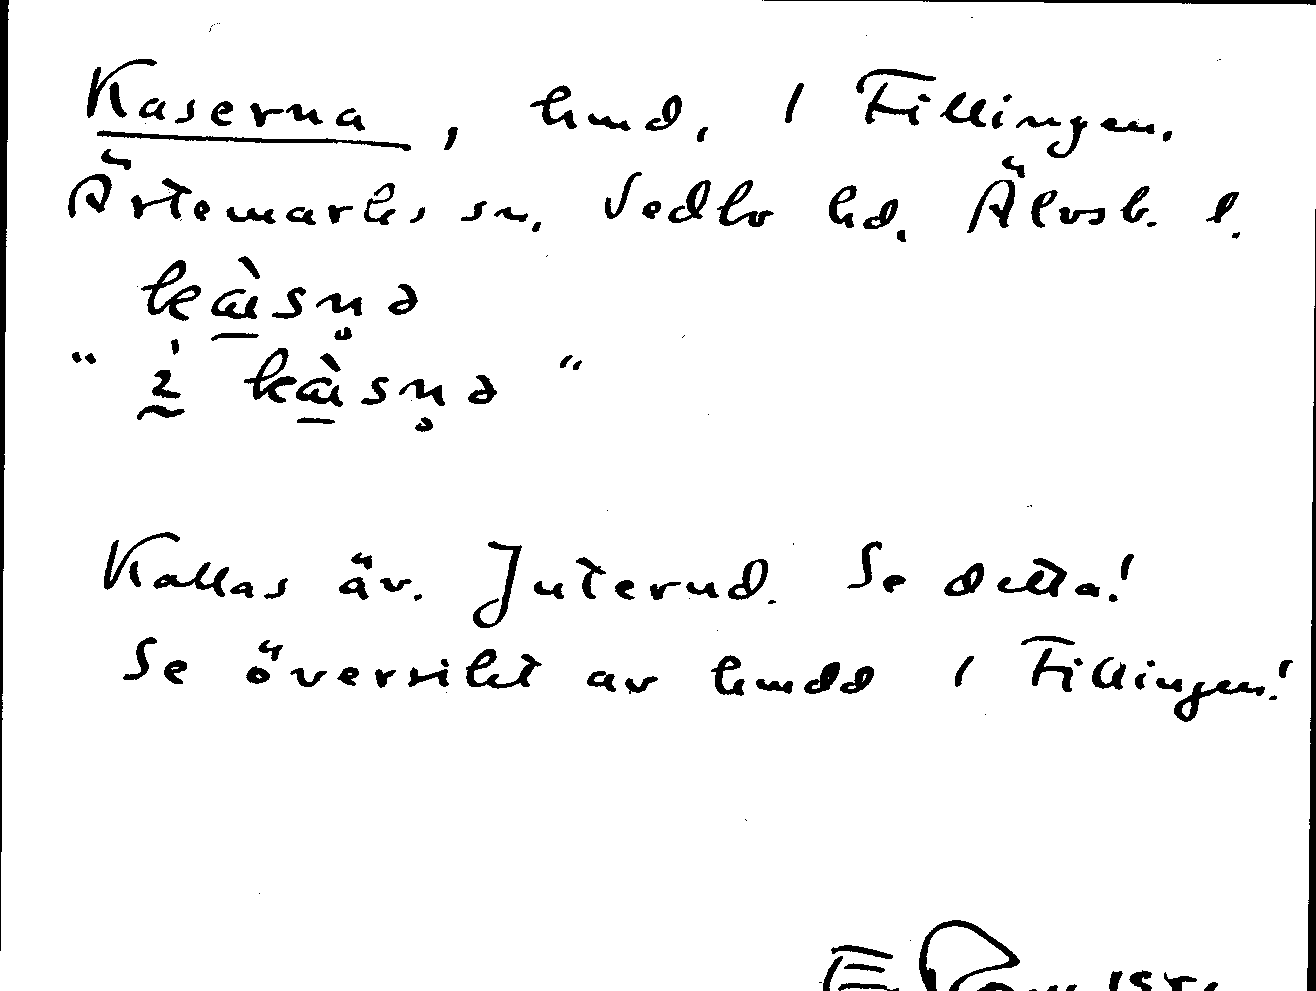 Kaserna, hmd, i Fillingen.
Ärtemarks sn. Vedbo hd. Älvsb. l.
"i
Kallas äv. Juterud. Se detta!
Se översikt av hmdd i Fillingen!